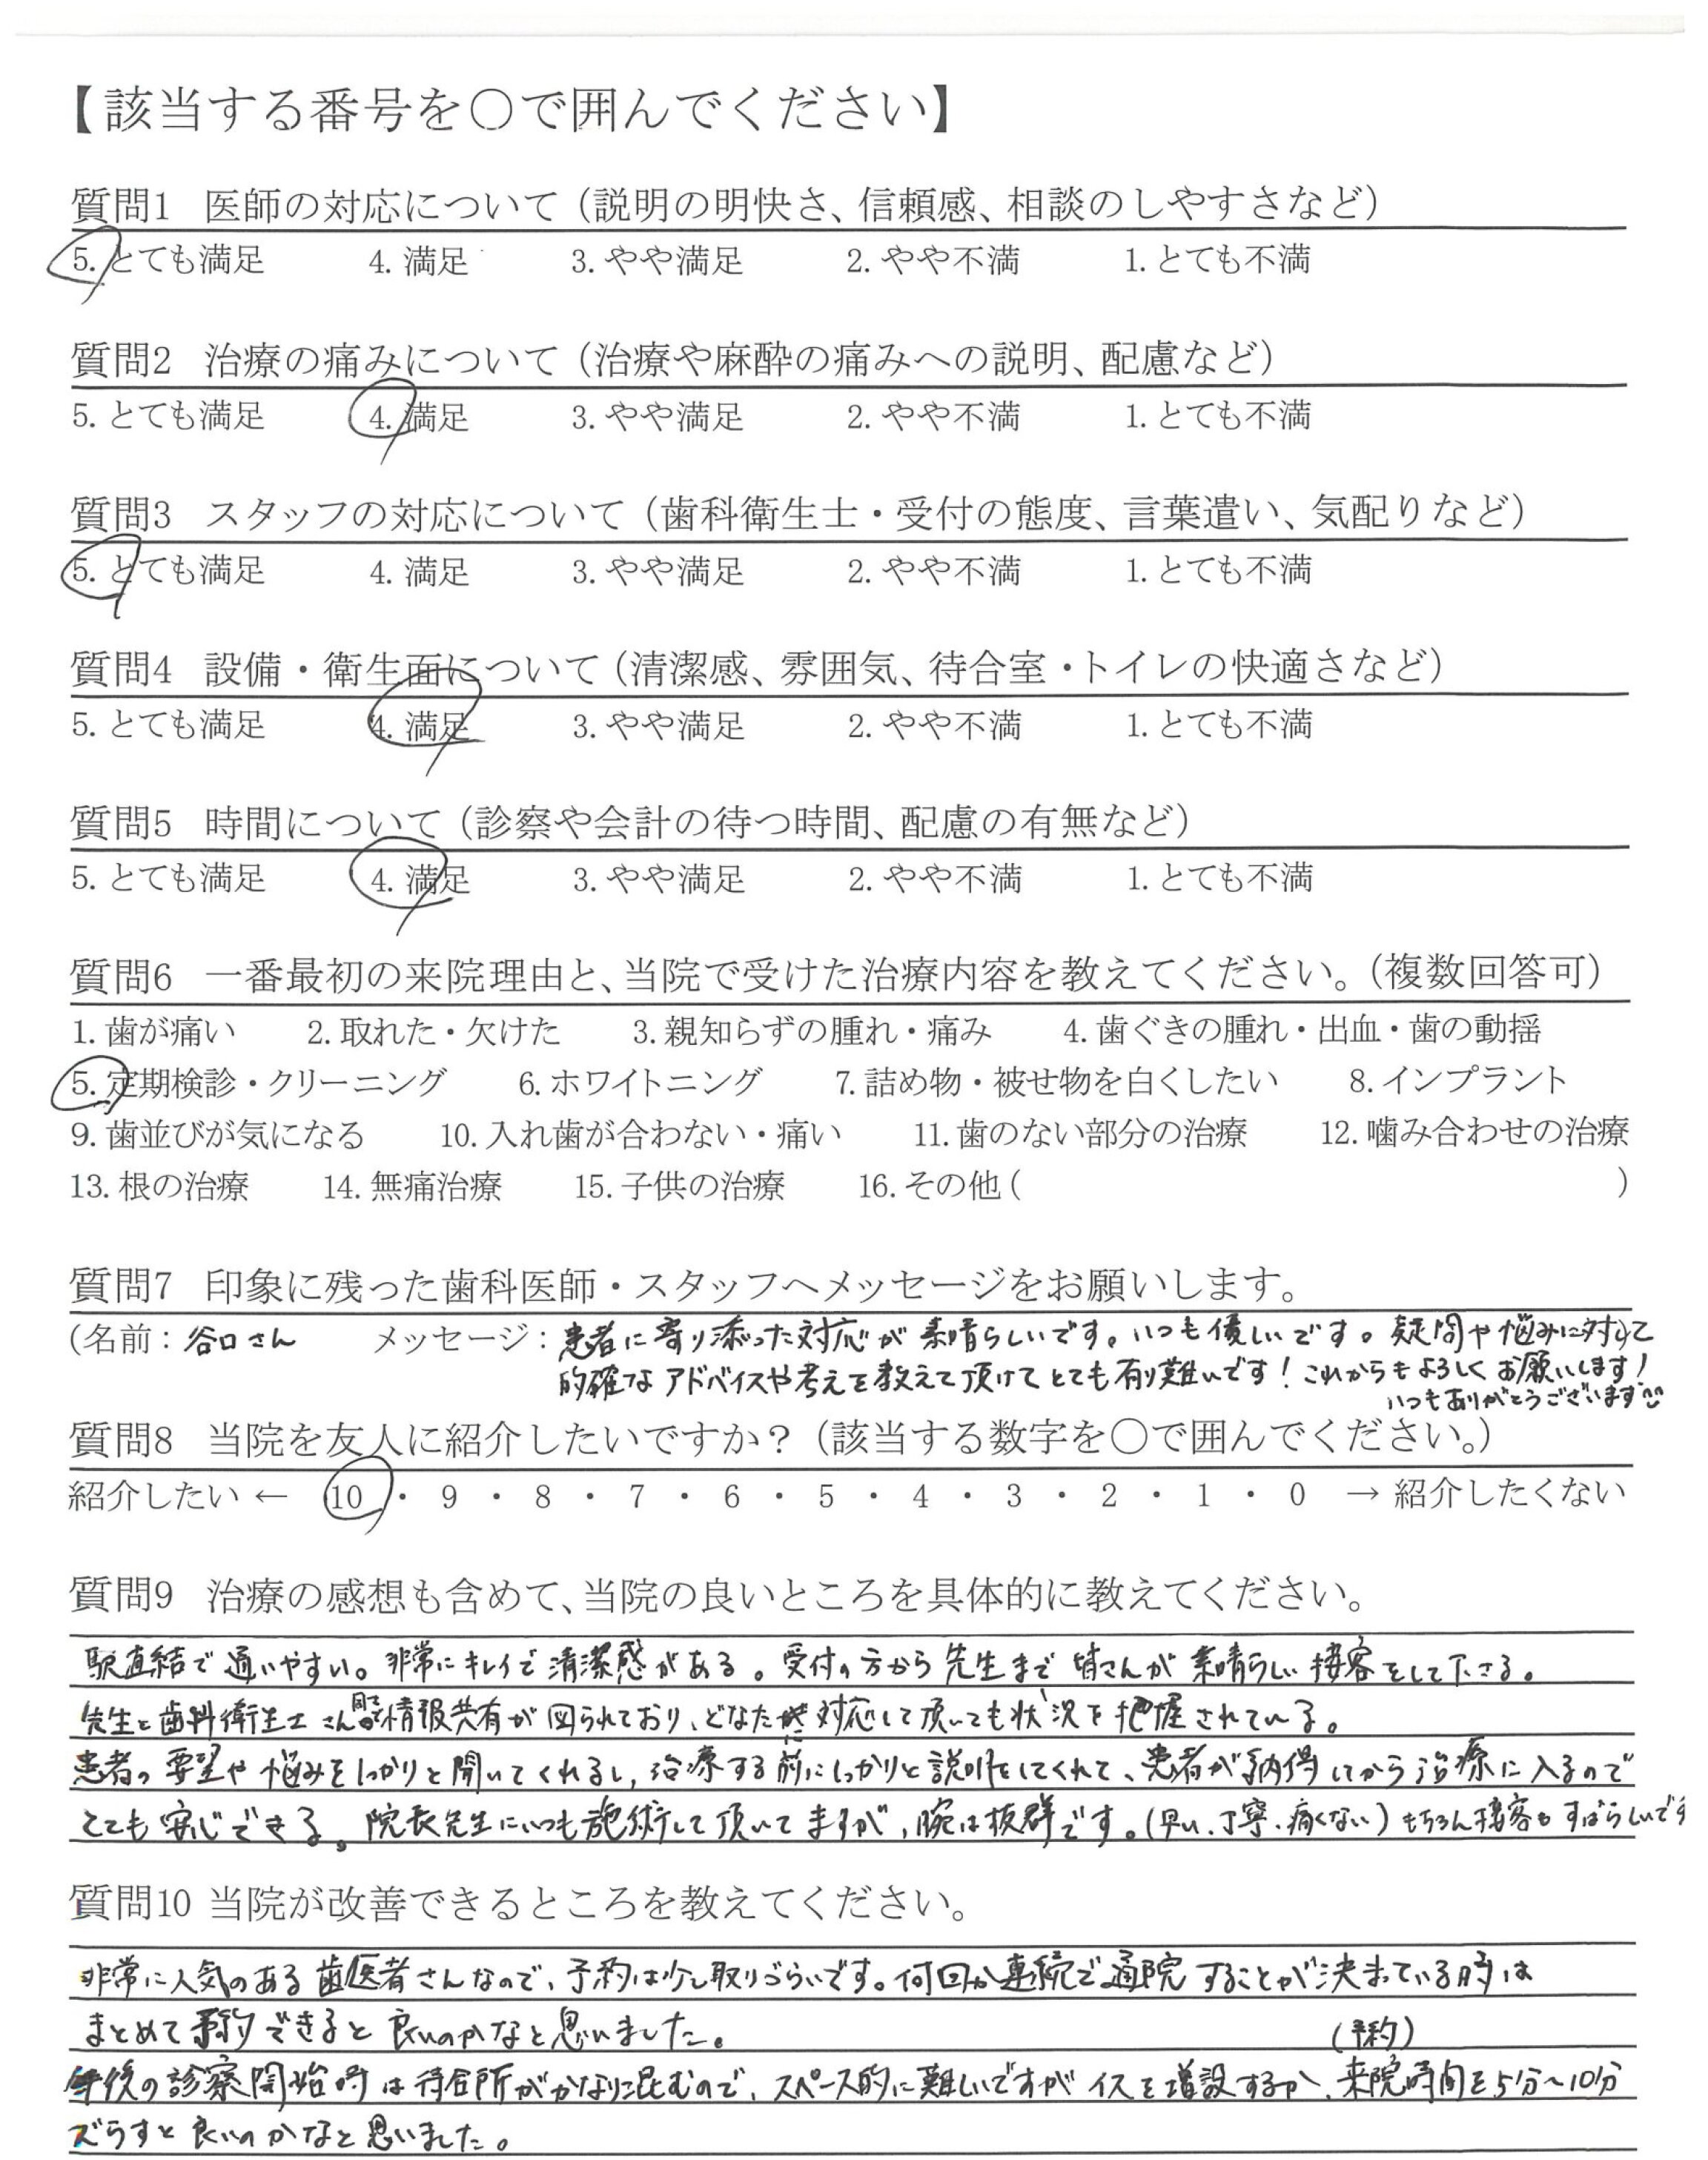 【該当する番号を○で囲んでください】
質問1 医師の対応について（説明の明快さ、信頼感、相談のしやすさなど）
5. とても満足 4. 満足 3. やや満足 2. やや不満 1. とても不満
質問2 治療の痛みについて（治療や麻酔の痛みへの説明、配慮など）
5. とても満足 4. 満足 3. やや満足 2. やや不満 1. とても不満
質問3 スタッフの対応について（歯科衛生士・受付の態度、言葉遣い、気配りなど）
5. とても満足 4. 満足 3. やや満足 2. やや不満 1. とても不満
質問4 設備・衛生面について（清潔感、雰囲気、待合室・トイレの快適さなど）
5. とても満足 4. 満足 3. やや満足 2. やや不満 1. とても不満
質問5 時間について（診察や会計の待つ時間、配慮の有無など）
5. とても満足 4. 満足 3. やや満足 2. やや不満 1. とても不満
質問6 一番最初の来院理由と、当院で受けた治療内容を教えてください。（複数回答可）
1. 歯が痛い 2. 取れた・欠けた 3. 親知らずの腫れ・痛み 4. 歯ぐきの腫れ・出血・歯の動揺
5. 定期検診・クリーニング 6. ホワイトニング 7. 詰め物・被せ物を白くしたい 8. インプラント
9. 歯並びが気になる 10. 入れ歯が合わない・痛い 11. 歯のない部分の治療 12. 噛み合わせの治療
13. 根の治療 14. 無痛治療 15. 子供の治療 16. その他（ ）
質問7 印象に残った歯科医師・スタッフへメッセージをお願いします。
（名前：谷口さん メッセージ：患者に寄り添った対応が素晴らしいです。いつも優しいです。疑問や悩みに対して
的確なアドバイスや考えを教えて頂けてとても有り難いです！これからもよろしくお願いします！
いつもありがとうございます
質問8 当院を友人に紹介したいですか？（該当する数字を○で囲んでください。）
紹介したい ← 10 ・ 9 ・ 8 ・ 7 ・ 6 ・ 5 ・ 4 ・ 3 ・ 2 ・ 1 ・ 0 → 紹介したくない
質問9 治療の感想も含めて、当院の良いところを具体的に教えてください。
駅直結で通いやすい。非常にキレイで清潔感がある。受付の方から先生まで皆さんが素晴らしい接客をして下さる。
先生と歯科衛生士さん同士の情報共有が図られており、どなたに対応して頂いても状況を把握されている。
患者の要望や悩みをしっかりと聞いてくれるし、治療する前にしっかりと説明をしてくれて、患者が納得してから治療に入るので
とても安心できる。院長先生にいつも施術して頂いてますが、腕は抜群です。（早い、丁寧、痛くない）もちろん接客もすばらしいです
質問10 当院が改善できるところを教えてください。
非常に人気のある歯医者さんなので、予約は少し取りづらいです。何回か連続で通院することが決まっている時は
まとめて予約できると良いのかなと思いました。
（予約）
午後の診察開始時は待合所がかなり混むので、スペース的に難しいですがイスを増設するか、来院時間を5分〜10分
ズらすと良いのかなと思いました。